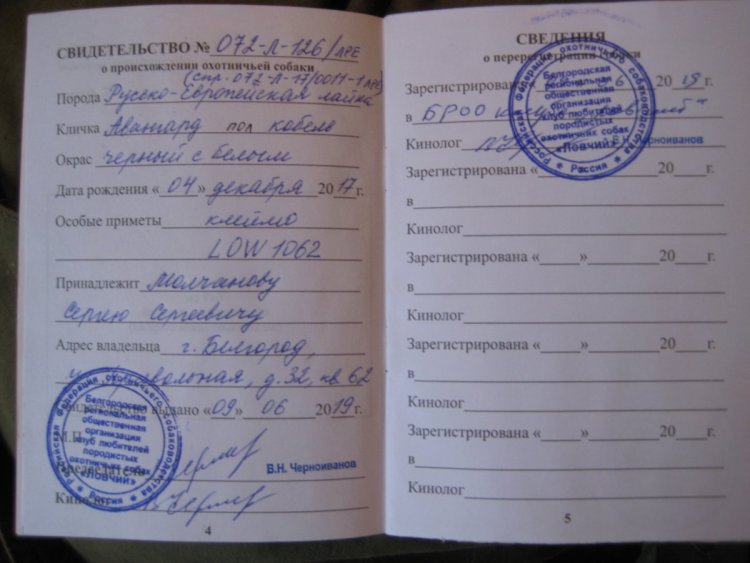 СВИДЕТЕЛЬСТВО № 072-Л-126/ЛРЕ
о происхождении охотничьей собаки
(спр. 072-Л-17/0011-1 ЛРЕ)
Порода Русско-Европейская лайка
Кличка Авангард пол кобель
Окрас черный с белым
Дата рождения «04» декабря 2017 г.
Особые приметы клеймо
LOW 1062
Принадлежит Молчанову
Сергею Сергеевичу
Адрес владельца г. Белгород,
д. 32, кв. 62
Свидетельство выдано «09» 06 2019 г.
М.П.
Председатель
В.Н. Черноиванов
Кинолог
Российская Федерация охотничьего собаководства
Белгородская
региональная
общественная
организация
клуб любителей
породистых
охотничьих собак
«ЛОВЧИЙ»
Россия
4
СВЕДЕНИЯ
о перерегистрации собаки
Зарегистрирована 6 2019 г.
в БРОО
Кинолог В.Н. Черноиванов
Российская Федерация охотничьего собаководства
Белгородская
региональная
общественная
организация
клуб любителей
породистых
охотничьих собак
«ЛОВЧИЙ»
Россия
Зарегистрирована «____»________20___г.
в
Кинолог
Зарегистрирована «____»________20___г.
в
Кинолог
Зарегистрирована «____»________20___г.
в
Кинолог
Зарегистрирована «____»________20___г.
в
Кинолог
5